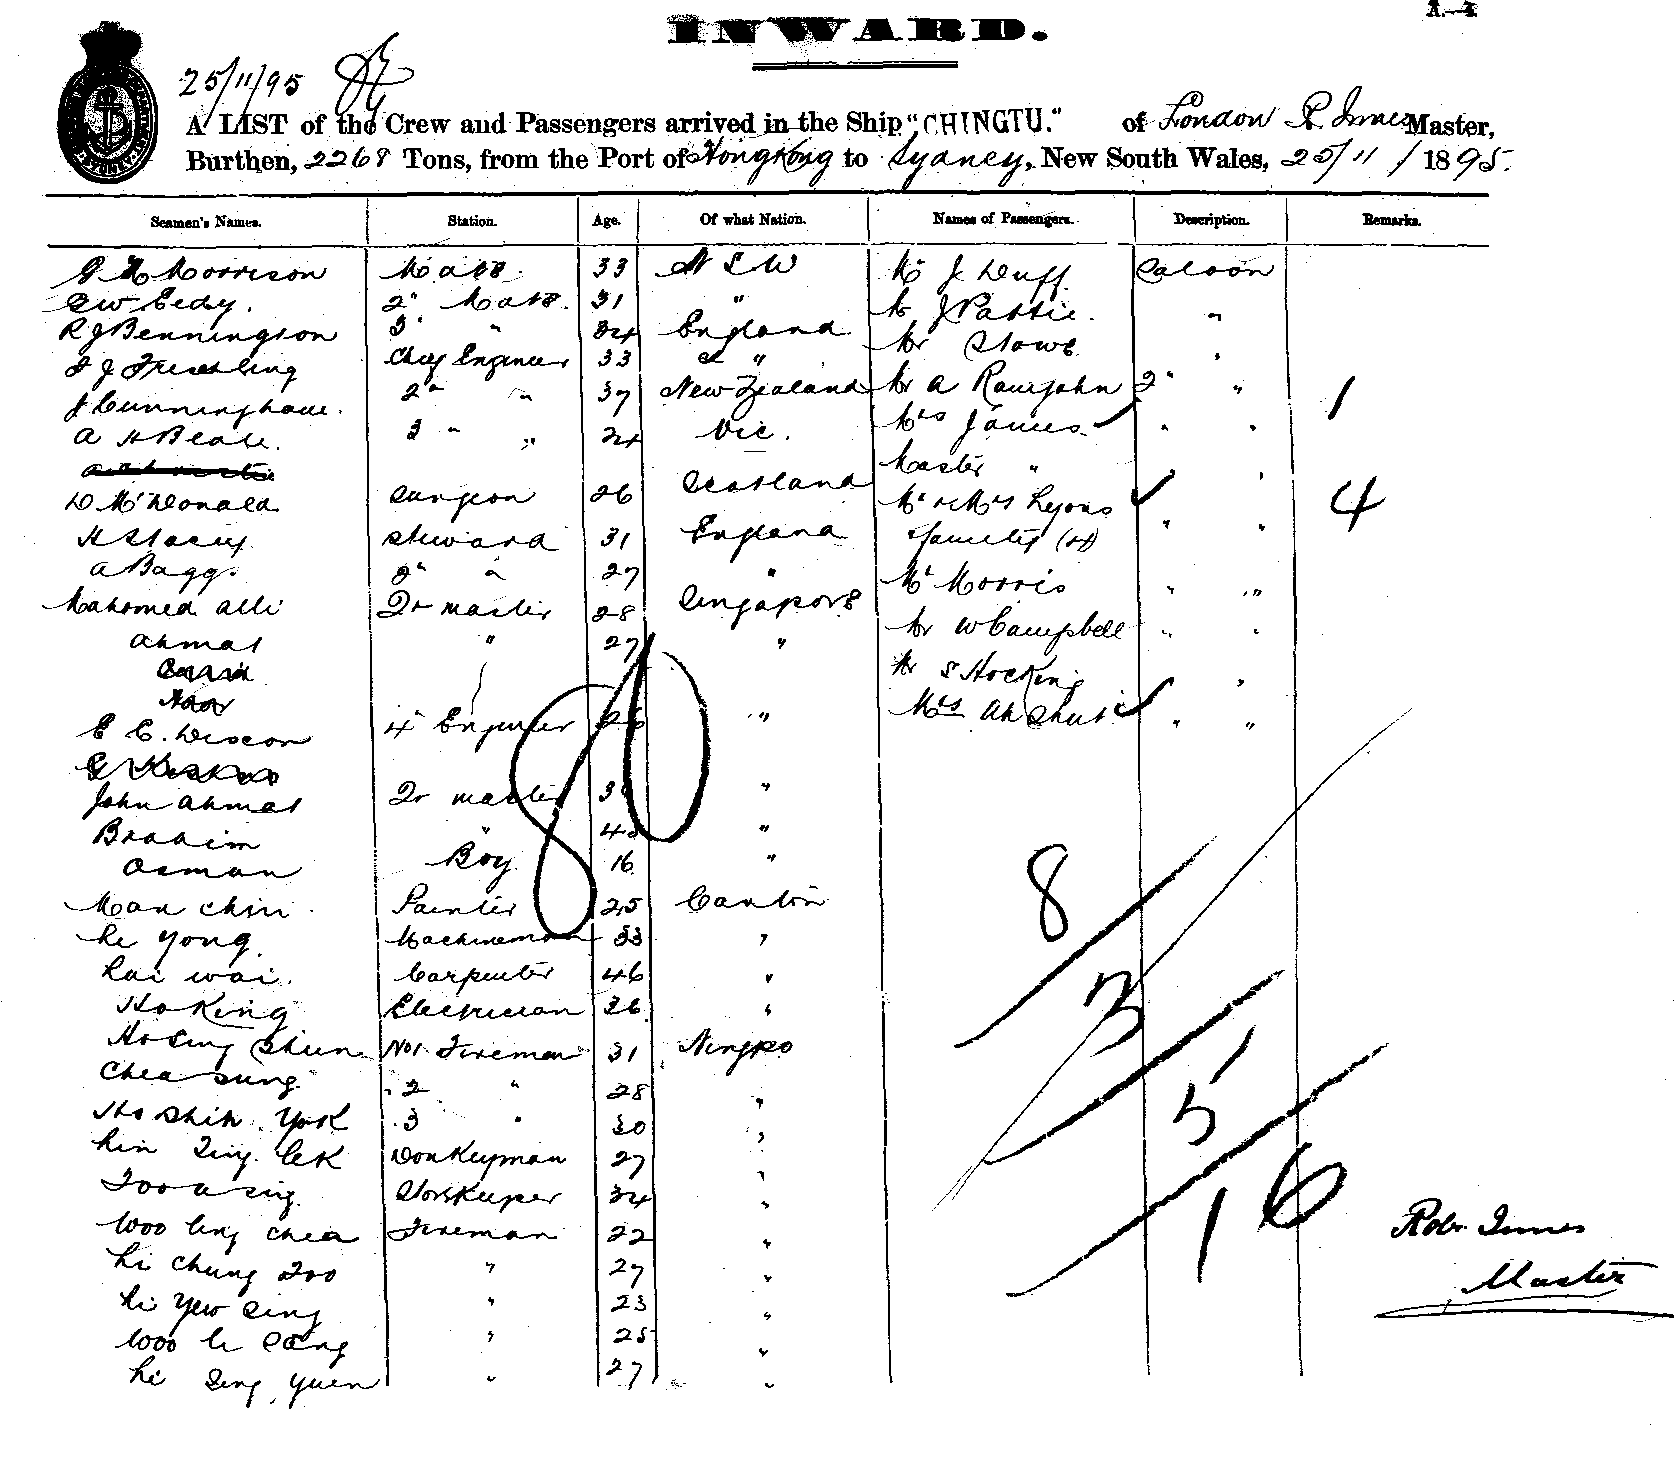 A.—4
INWARD.
25/11/95
A LIST of the Crew and Passengers arrived in the Ship "CHINGTU." of London R Innes Master,
Burthen, 2268 Tons, from the Port of Hongkong to Sydney, New South Wales, 25/11/1895.
Seamen's Names. Station. Age. Of what Nation. Names of Passengers. Description. Remarks.
Morrison Mate 33 N S W Mr J Duff Saloon
2" Mate 31 " Mr J Pattie "
R J Bennington 3" " 34 England Mr Stowe "
Chief Engineer 33 "
J Cunninghame 2" " 37 New Zealand Mr A Ramjohn 2" " 1
A H Beale 3 " " 24 Vic. Mrs James " "
Master " "
D McDonald Surgeon 26 Scotland Mr & Mrs Lyons 4
H Stacey Steward 31 England Family (4) " "
A Baggs 2" " 27 " Mr Morris " "
Mahomed Alli Qr master 28 Singapore Mr W Campbell " "
Ahmat " 27 " Mr S Hocking "
E C. Discon 4" Engineer 26 " Mrs Ah Shut " "
80
John Ahmat Qr master "
Braaim " "
Osman Boy 16 "
Man Chin Painter 25 Canton
8
Li Yong Machineman 33 "
Lai Wai Carpenter 46 "
3
Ho King Electrician 36 "
Ho Sing Shun No 1 Fireman 31 Ningpo
51
Chea Sung 2 " 28 "
Ho Shih Yok 3 " 30 "
Lin Sing Cek Donkeyman 27 "
Foo a Sing Storekeeper 34 "
16
Woo Ling Chea Fireman 22 "
Robt Innes
Li Chung Foo " 27 "
Master
Li Yew Sing " 23 "
Woo Li Sang " 25 "
Li Sing Yuen " 27 "